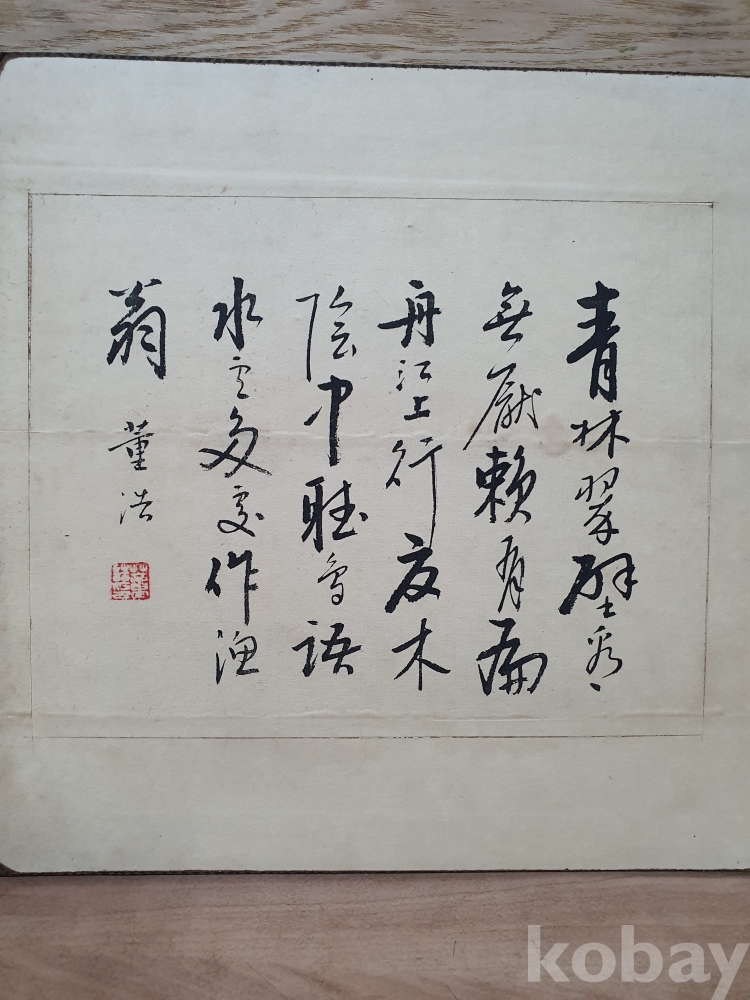 青林翠壁看
無厭賴有扁
舟江上行夏木
陰中聽鳥語
水雲多處作漁
翁 董浩
kobay